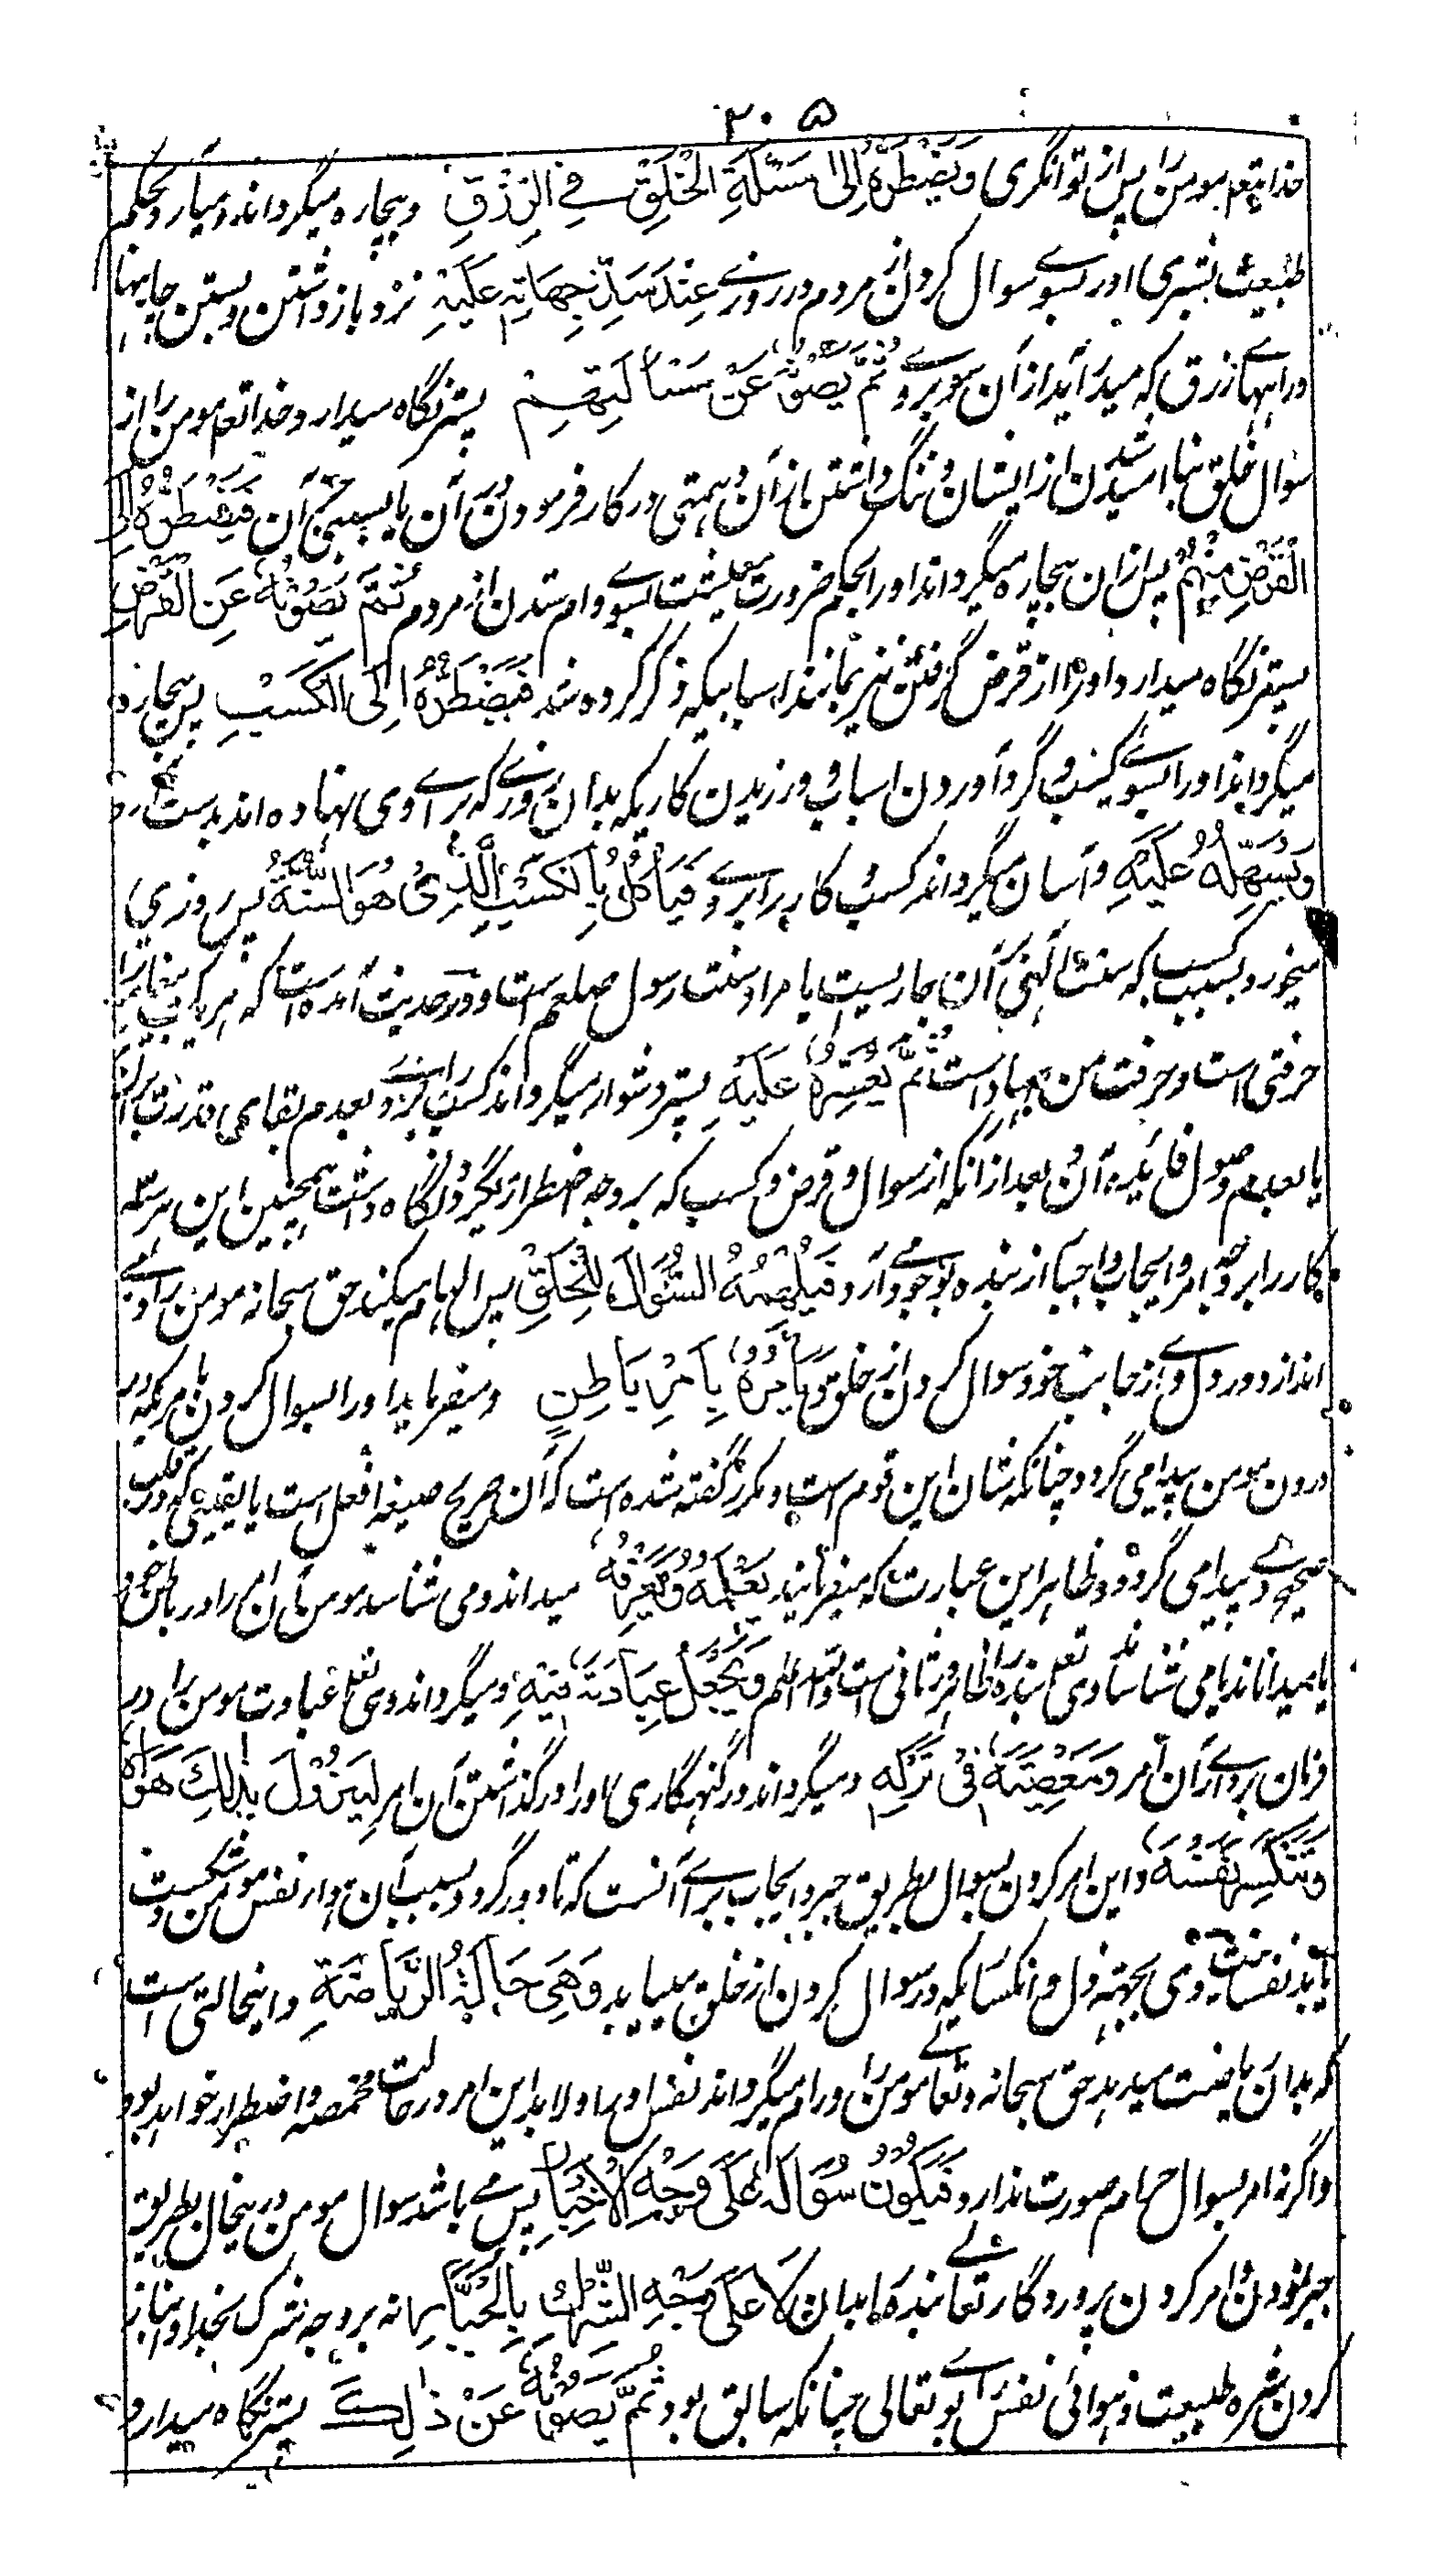 ۲۰۵
خدایتعم مومن را پس از توانگری وَیَضْطَرُّهُ اِلٰی مَسْئَلَةِ الْخَلْقِ فِی الرِّزْقِ و بیچاره میگرداند و میارد بحکم
طبیعت بشری او را بسوے سوال کردن از مردم در روزے عِنْدَ سَدِّ جِهَاتِهٖ عَلَیْهِ نزد بازداشتن و بستن جایهاے
و راههاے رزق که میدرآید از آن سو بروے ثُمَّ یَصُوْنُهُ عَنْ مَسْاَلَتِهِمْ پستر نگاه میدارد خدایتعم مومن را از
سوال خلق بنا امید شدن از ایشان و ننگ داشتن از آن و همتی در کار فرمودن در آن یا بسببی جز آن فَیَضْطَرُّهُ اِلَی
الْقَرْضِ مِنْهُمْ پس از آن بیچاره میگرداند او را بحکم ضرورت معیشت بسوے وام ستدن از مردم ثُمَّ یَصُوْنُهُ عَنِ الْقَرْضِ
پستر نگاه میدارد او را از قرض گرفتن نیز بمانند اسبابیکه ذکر کرده شد فَیَضْطَرُّهُ اِلَی الْکَسْبِ پس بیچاره
میگرداند او را بسوے کسب و گردآوردن اسباب و ورزیدن کاریکه بدان روزے که براے وی نهاده اند بدست آرد
وَیُسَهِّلُهُ عَلَیْهِ و آسان میگرداند کسب کار را بروے فَیَأْکُلُ بِالْکَسْبِ الَّذِیْ هُوَ السُّنَّةُ پس روزی
میخورد بسبب کسب که سنت الهی بر آن جاریست یا مراد سنت رسول صلعم است و در حدیث آمده است که هر یک پیغامبر را
حرفتی است و حرفت من جهاد است ثُمَّ یُعَسِّرُهُ عَلَیْهِ پستر دشوار میگرداند کسب را بروے بعدم بقای قدرت بر آن
یا بعدم وصول فائده آن بعد از آنکه از سوال و قرض و کسب که بر وجه اضطرار بگیرد نگاه داشت همچنین این هر سه
کار را بر وجه امر و ایجاب و اجبا از بنده بوجود مے آرد فَیُلْهِمُهُ السُّؤَالَ لِلْخَلْقِ پس الهام میکند حق سبحانه مومن را و مے
اندازد در دل وے از جانب خود سوال کردن از خلق وَیَأْمُرُهُ بِاَمْرٍ بَاطِنٍ و میفرماید او را بسوال کردن بامریکه در
درون مومن پیدا می گردد چنانکه شان این قوم است و مکرر گفته شده است که آن صریح صیغه افعل است یا یقینی که در قلب
صحیح وے پیدا می گردد و ظاهر این عبارت که میفرمایند یَعْلَمُهُ وَیَعْرِفُهُ میداند و می شناسد مومن آن امر را در باطن خود
یا میداناند یا می شناساند وی تعلی بنده را ظاهر ثانی است والله اعلم وَیَجْعَلُ عِبَادَتَهُ فِیْهِ و میگرداند وی تعلی عبادت مومن را در
فرمان بردارے آن امر وَمَعْصِیَتَهُ فِیْ تَرْکِهٖ و میگرداند گنهگاری او را در گذاشتن آن امر لِیَزُوْلَ بِذٰلِکَ هَوَاهُ
وَتَنْکَسِرَ نَفْسُهُ و این امر کردن بسوال بطریق جبر و ایجاب براے آنست که تا دور گردد بسبب آن هوا از نفس مومن و شکست
یابد نفسانیت وی بجهت ذل و انکساریکه در سوال کردن از خلق مییابد وَهِیَ حَالَةُ الرِّیَاضَةِ و اینحالتی است
که بدان ریاضت میدهد حق سبحانه و تعالے مومن را و رام میگرداند نفس او را و لابد این امر در حالت مخمصه و اضطرار خواهد بود
واگرنه امر بسوال حرام صورت ندارد فَیَکُوْنُ سُؤَالُهُ عَلٰی وَجْهِ الْاِجْبَارِ پس مے باشد سوال مومن درینحال بطریق
جبر نمودن و امر کردن پروردگار تعالے بنده را بدان لَا عَلٰی وَجْهِ الشِّرْکِ بِالْجَبَّارِ نه بر وجه شرک بخدا و انباز
کردن بشره طبیعت و هوائی نفس را بوے تعالی چنانکه سابق بود ثُمَّ یَصُوْنُهُ عَنْ ذٰلِکَ پستر نگاه میدارد